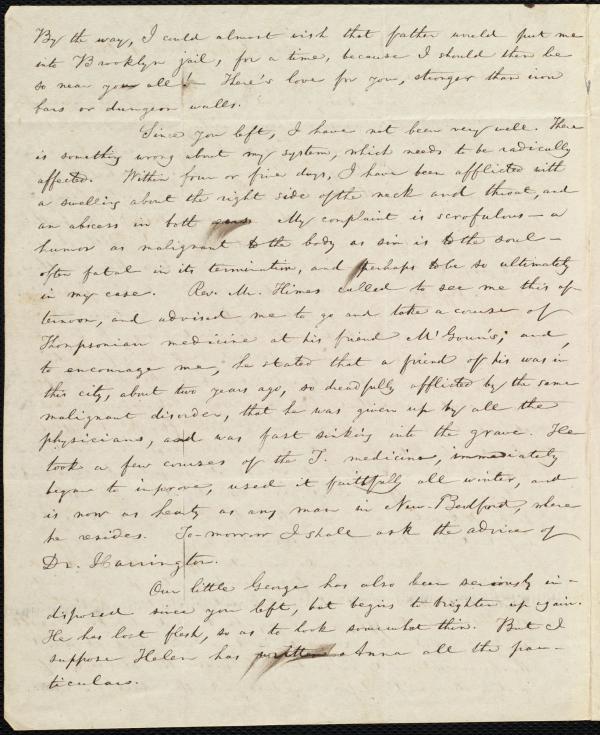 By the way, I could almost wish that father would put me
into Brooklyn jail, for a time, because I should then be
so near you all! There's love for you, stronger than iron
bars or dungeon walls.
Since you left, I have not been very well. There
is something wrong about my system, which needs to be radically
affected. Within four or five days, I have been afflicted with
a swelling about the right side of the neck and throat, and
an abscess in both My complaint is scrofulous — a
humor as malignant to the body as sin is to the soul —
often fatal in its termination, and perhaps to be so ultimately
in my case. Rev. Mr. Himes called to see me this af-
ternoon, and advised me to go and take a course of
Thompsonian medicine at his friend and,
to encourage me, he stated that a friend of his was in
this city, about two years ago, so dreadfully afflicted by the same
malignant disorder, that he was given up by all the
physicians, and was fast sinking into the grave. He
took a few courses of the T. medicine, immediately
began to improve, used it faithfully all winter, and
is now as hearty as any man in New-Bedford, where
he resides. To-morrow I shall ask the advice of
Dr. Harrington.
Our little George has also been seriously in-
disposed since you left, but begins to brighten up again.
He has lost flesh, so as to look somewhat thin. But I
suppose Helen has written Anna all the par-
ticulars.